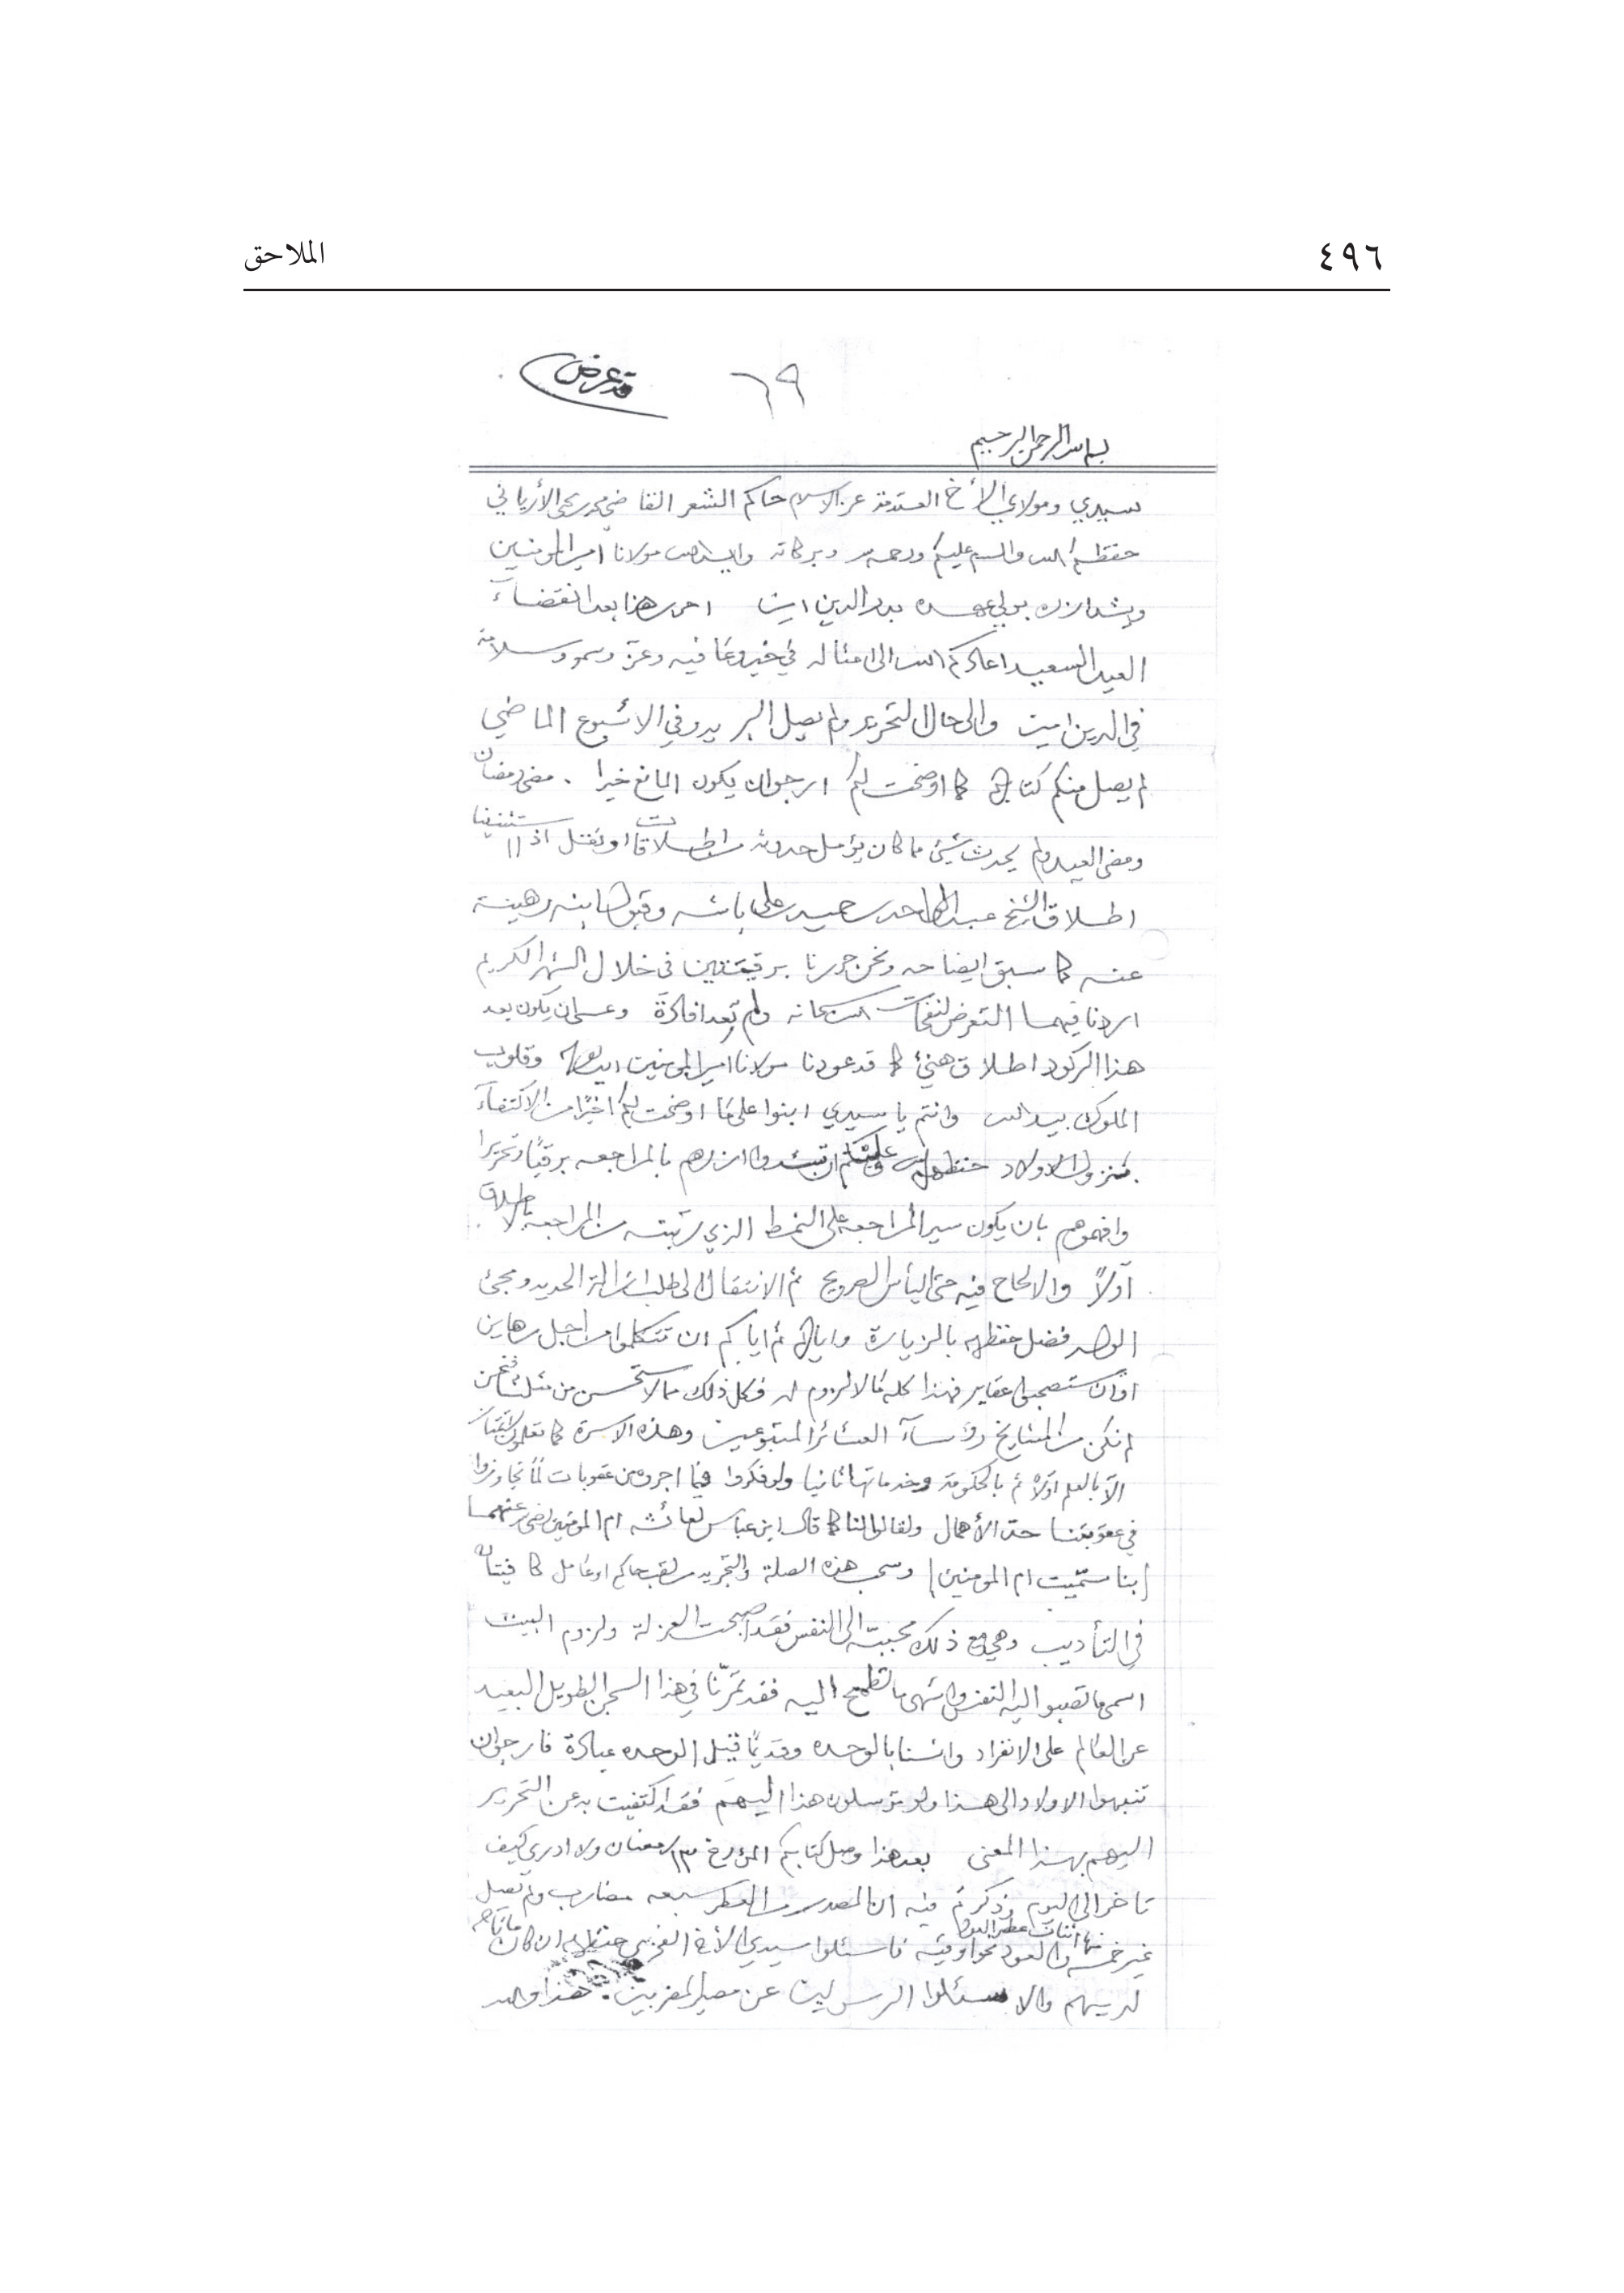 ٤٩٦
الملاحق
٦٩
قد عرض
بسم الله الرحمن الرحيم
سيدي ومولاي الأخ العلامة عز الاسلام حاكم الشعر القاضي محمد يحيى الأرياني
حفظكم الله والسلام عليكم ورحمة الله وبركاته وايد الله مولانا امير المؤمنين
وشد ازره بولي عهده بدر الدين امين هذا بعد انقضاء
العيد السعيد اعادكم الله الى امثاله في خير وعافيه وعز وسمو وسلامة
في الدين امين والى حال التحرير ولم يصل البريد وفي الاسبوع الماضي
لم يصل منكم كتاب كما اوضحت لكم ارجو ان يكون المانع خيرا . مضى رمضان
ومضى العيد ولم يحدث شيئ مما كان يؤمل حدوثه من اطلاقات او نقل اذا استثنينا
اطلاق الشيخ عبد الواحد سعيد علي باشه وقبول ابنه رهينة
عنه كما سبق ايضاحه ونحن حررنا برقيتين في خلال الشهر الكريم
اردنا فيهما التعرض لنفحات الله سبحانه ولم تعد افادة وعسى ان يكون بعد
هذا الركود اطلاق هنيئ كما قد عودنا مولانا امير المؤمنين ايده الله وقلوب
الملوك بيد الله وانتم يا سيدي ابنوا على ما اوضحت لكم اخيرا من الاكتفاء
بنزول الاولاد حفظهم الله وعليكم ان تشدوا ازرهم بالمراجعه برقيًا وتحريرا
وافهموهم بان يكون سير المراجعه على النمط الذي رتبته من المراجعة بالاطلاق
اولاً والالحاح فيه حتى اليأس الصريح ثم الانتقال الى طلب انزال الحديد ومجئ
الولد فضل حفظه الله بالزيارة واياكم ثم اياكم ان تتكلموا من اجل رهاين
او ان تستصحبوا عقاير فهذا كله مما لا لزوم له فكل ذلك مما لا يستحسن من مثلنا فنحن
لم نكن من المشايخ رؤساء العشائر المتبوعين وهذه الاسرة كما تعلمون
الا بالعلم اولاً ثم بالحكومة وخدماتها ثانيا ولو فكروا فيما اجروه من عقوبات لما تجاوزوا
في عقوبتنا حد الأهمال ولقالوا لنا كما قال ابن عباس لعائشه ام المؤمنين رضي الله عنهما
[بنا سمّيت ام المؤمنين] وسحب هذه الصلة والتجريد من لقب حاكم او عامل كافيتان
في التأديب وهي مع ذلك محببة الى النفس فقد اصبحت العزلة ولزوم البيت
اسمى ما تصبوا اليه النفس واشهى ما تطمح اليه فقد تمرّنا في هذا السجن الطويل البعيد
عن العالم على الانفراد وانسنا بالوحده وقديمًا قيل الوحده عبادة فارجو ان
تنبهوا الاولاد الى هذا ولو ترسلون هذا اليهم فقد اكتفيت به عن التحرير
اليهم بهذا المعنى بعد هذا وصل كتابكم المؤرخ ١٣ رمضان ولا ادري كيف
تاخر الى اليوم وذكرتم فيه ان المصدر من العطر سبعه مضارب ولم تصل
غير خمسه والعود نحو اوقيه فاسئلوا سيدي الأخ الفخري حفظه الله ان كان
لديهم والا اسئلوا الرسولين عن مصير المضربين. هذا والله